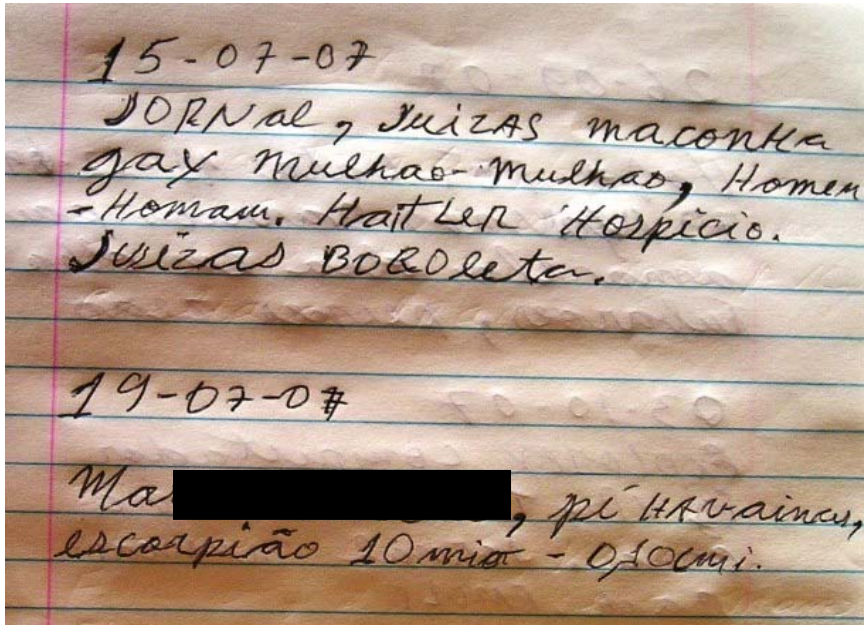 15-07-07
JORNal, JuizAS maconHa
gay mulhao-mulhao, Homem
-Homam. HaitLER Hospício.
Juizas BOROleta.
19-07-07
Ma , pí HAvainas,
escorpião 10 mio - 0,10cmi.